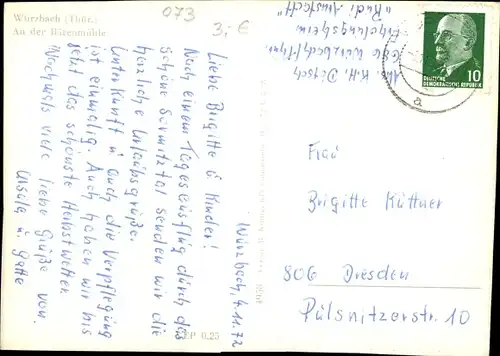 Wurzbach (Thür.)
An der Bärenmühle
073
3,- €
Würzbach, 4.11.72
Liebe Brigitte u Kinder!
Nach einem Tagesausflug durch das
schöne Sormitztal senden wir die
herzliche Urlaubsgrüße.
Unterkunft u auch die Verpflegung
ist einmalig. Auch haben wir bis
jetzt das schönste Herbstwetter
Nochmals viele liebe Grüße von
Ursula u Gatte
Abs. K.H. Dietsch
Wurzbach/Thür.
Erholungsheim
"Rudi Arnstadt"
DEUTSCHE
DEMOKRATISCHE REPUBLIK
10
a
Frau
Brigitte Küttner
806 Dresden
Pulsnitzerstr. 10
EVP 0,25